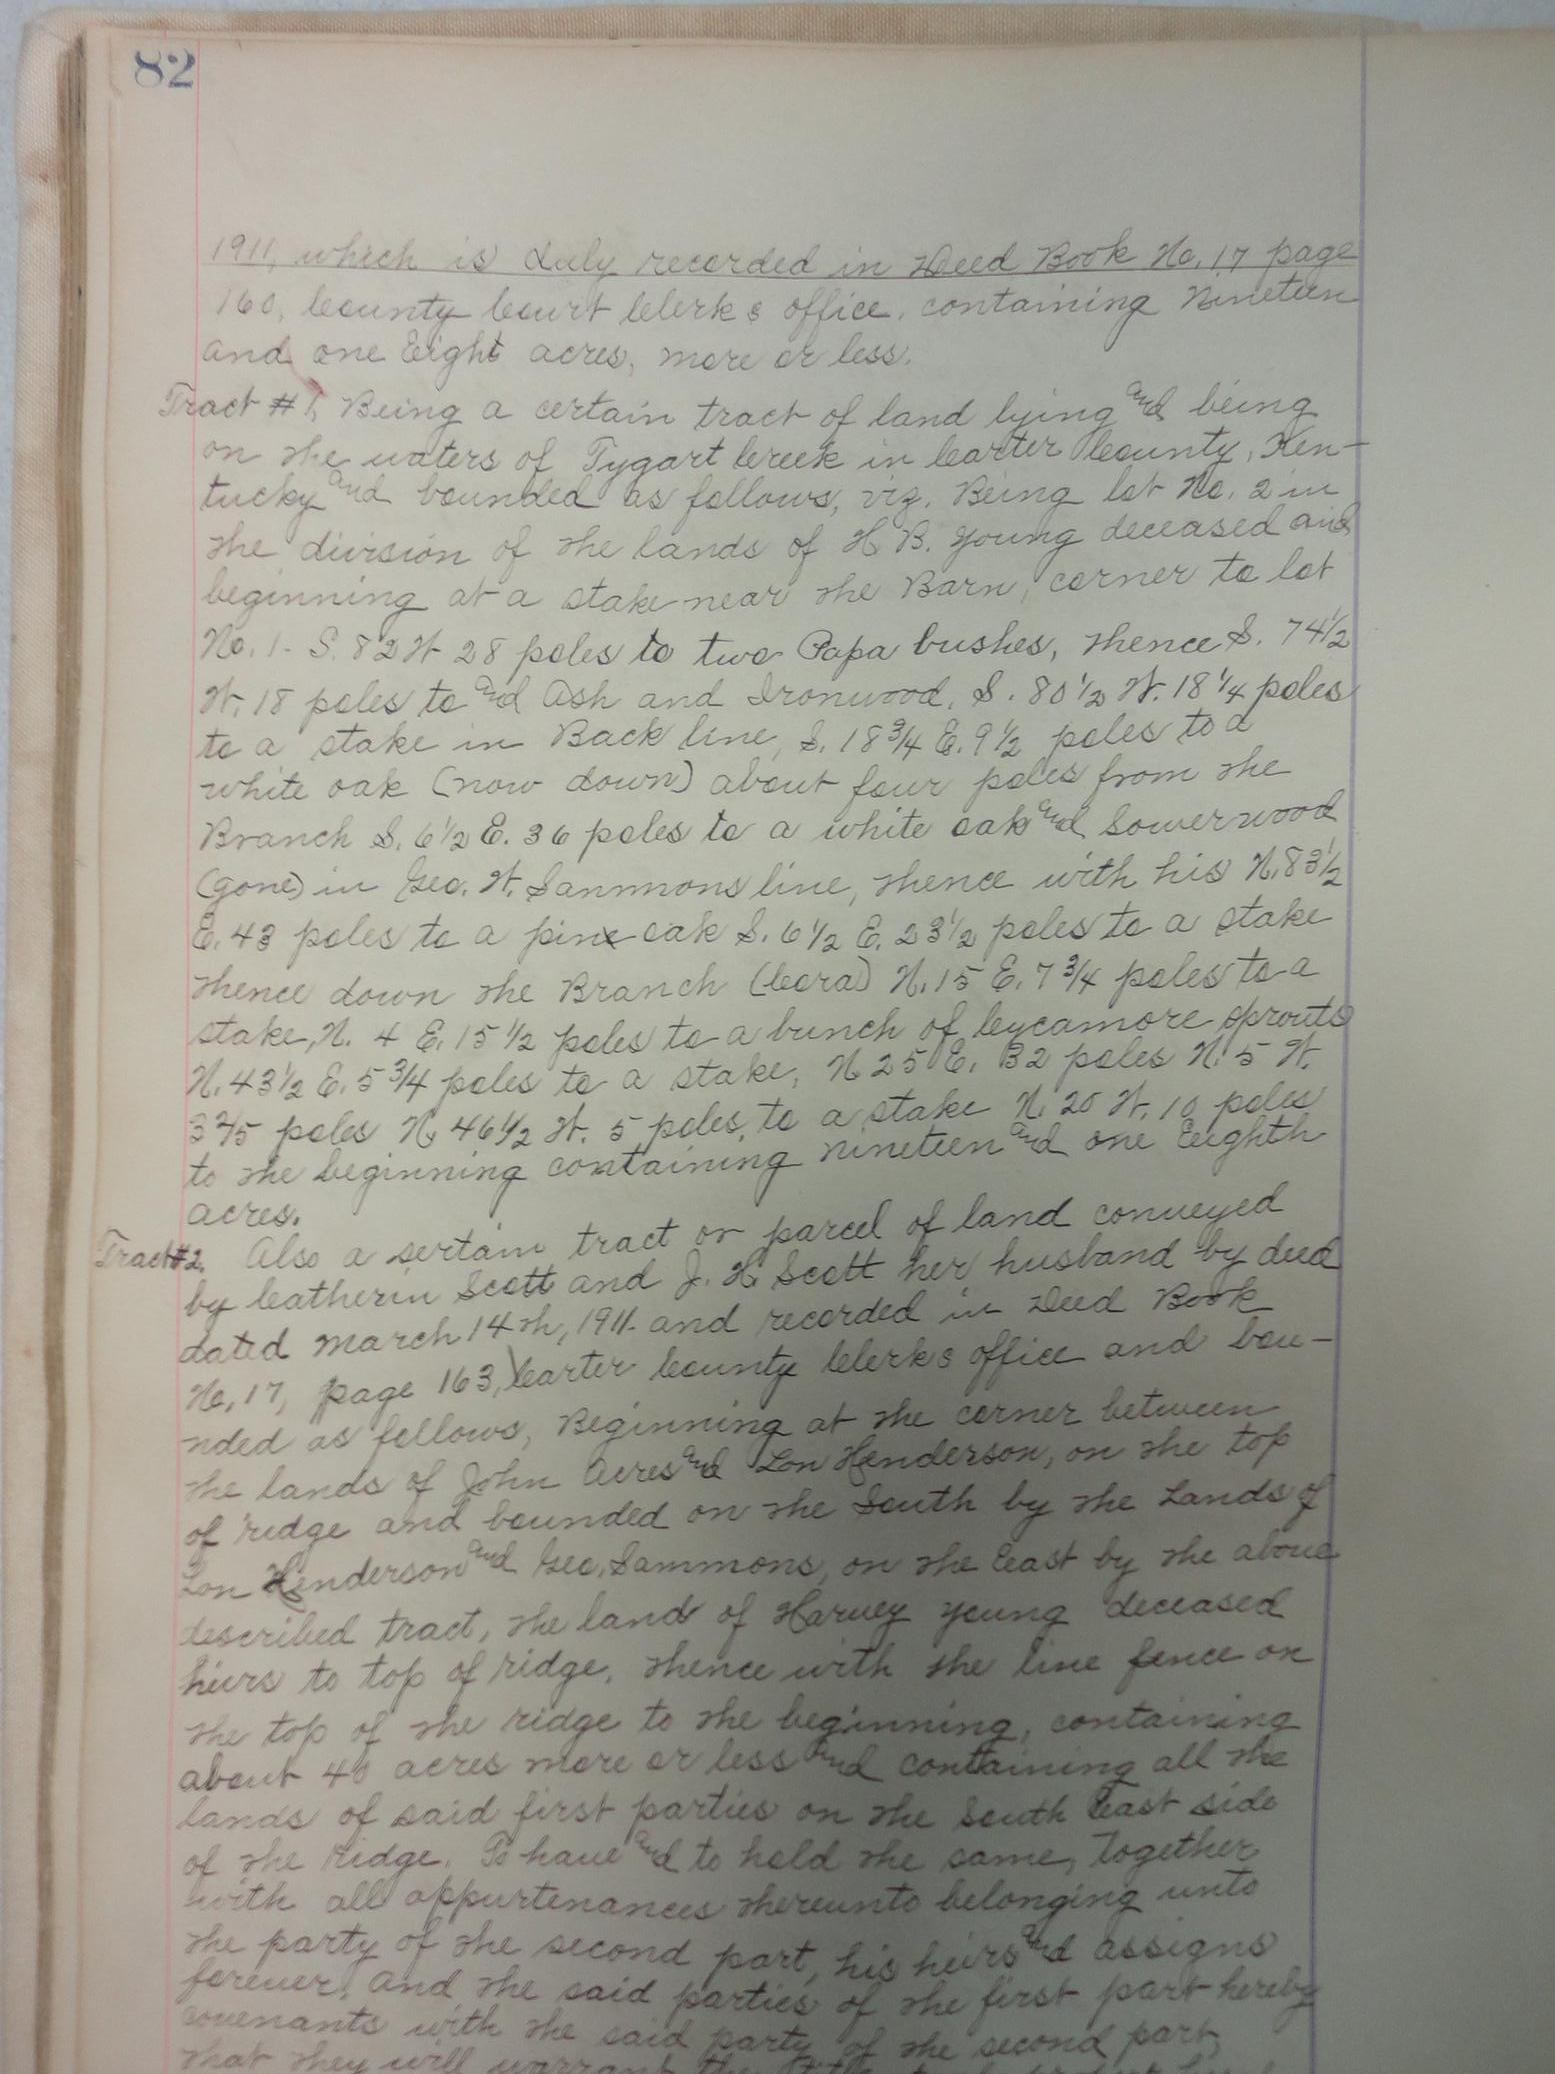 82
1911, which is duly recorded in Deed Book No. 17 page
160, County Court Clerks office, containing Nineteen
and one Eight acres, more or less.
Tract #1, Being a certain tract of land lying and being
on the waters of Tygart Creek in Carter County, Ken-
tucky and bounded as follows, viz. Being lot No. 2 in
the division of the lands of H B. Young deceased and
beginning at a stake near the Barn, corner to lot
No. 1 - S. 82 W 28 poles to two Papa bushes, thence S. 74 1/2
W. 18 poles to and Ash and Ironwood, S. 80 1/2 W. 18 1/4 poles
to a stake in Back line, S. 18 3/4 E. 9 1/2 poles to a
white oak (now down) about four poles from the
Branch S. 6 1/2 E. 36 poles to a white oak and Sowerwood
(gone) in Geo. W. Sammons line, thence with his N. 83 1/2
E. 43 poles to a pine oak S. 6 1/2 E. 23 1/2 poles to a stake
thence down the Branch (Cora) N. 15 E. 7 3/4 poles to a
stake, N. 4 E. 15 1/2 poles to a bunch of Cycamore sprouts
N. 43 1/2 E. 5 3/4 poles to a stake, N 25 E. 32 poles N. 5 W.
3 2/5 poles N. 46 1/2 W. 5 poles, to a stake N. 20 W. 10 poles
to the beginning containing nineteen and one Eighth
acres.
Tract #2. Also a sertain tract or parcel of land conveyed
by Catherin Scott and J. H. Scott her husband by deed
dated March 14th, 1911 - and recorded in Deed Book
No, 17, page 163, Carter County Clerks office and bou-
nded as follows, Beginning at the corner between
the lands of John Acres and Lon Henderson, on the top
of ridge and bounded on the South by the Lands of
Lon Henderson and Geo, Sammons, on the East by the above
described tract, the land of Harvey Young deceased
heirs to top of ridge, thence with the line fence on
the top of the ridge to the beginning, containing
about 40 acres more or less and containing all the
lands of said first parties on the South East side
of the ridge. To have and to hold the same, Together
with all appurtenances thereunto belonging unto
the party of the second part, his heirs and assigns
forever, And the said parties of the first part hereby
covenants with the said party of the second part,
that they will warrant the title